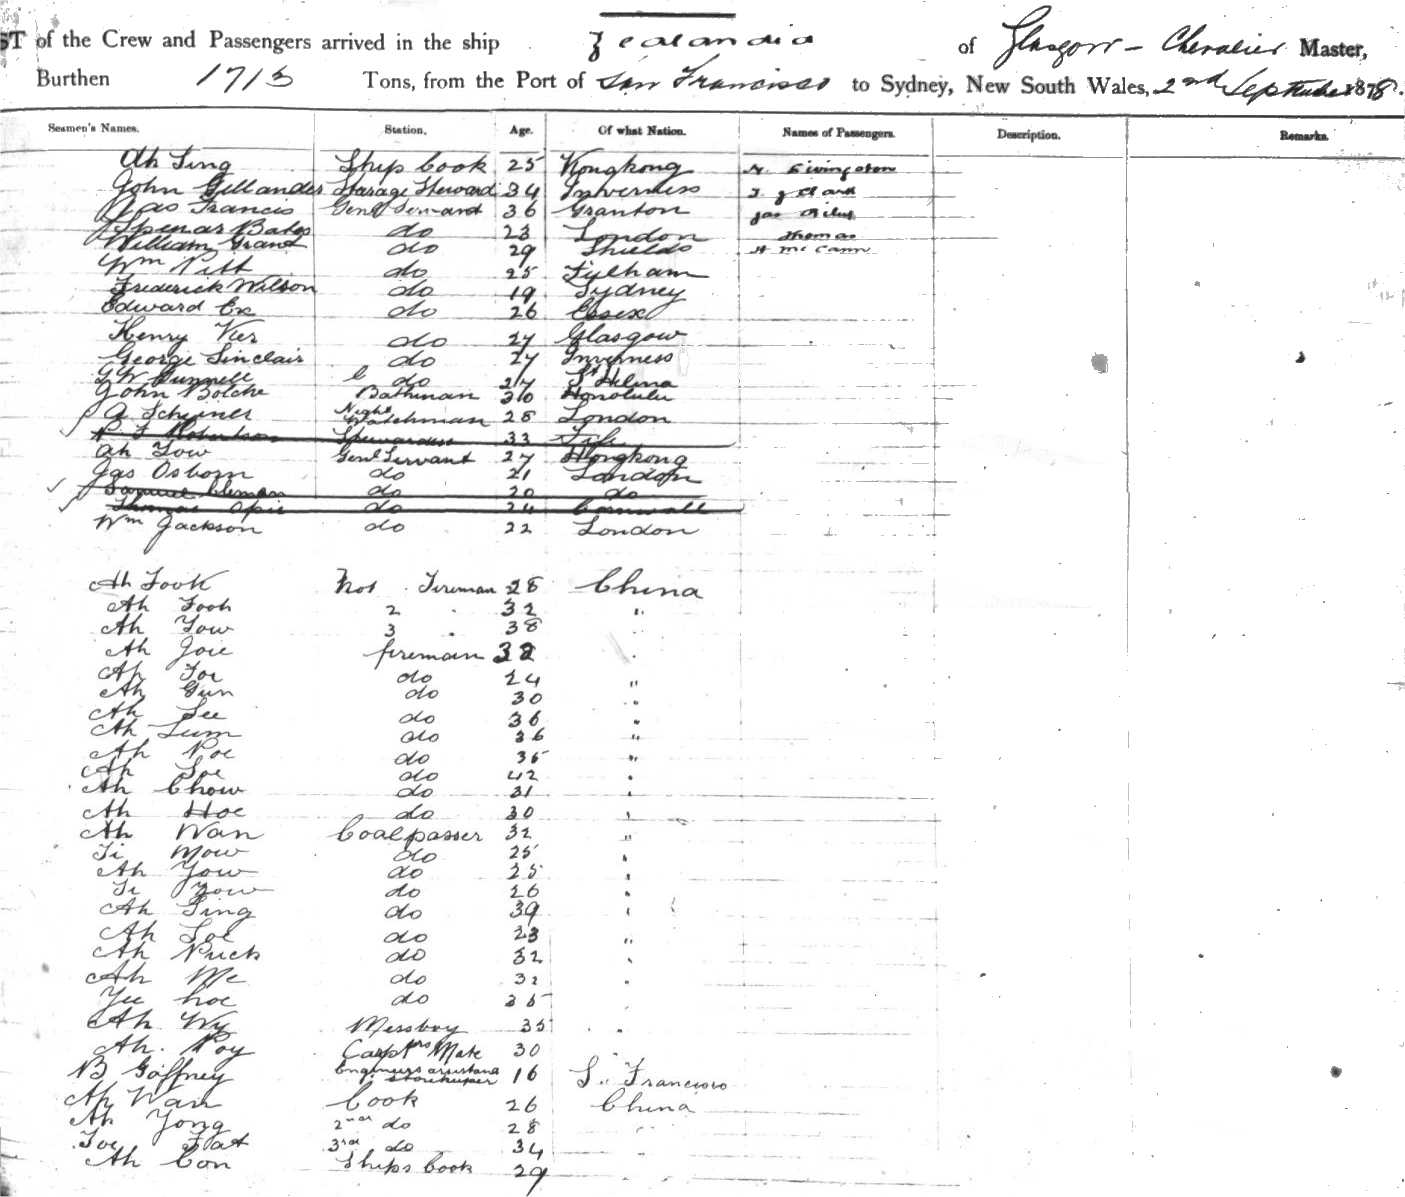 ST of the Crew and Passengers arrived in the ship Zealandia of Glasgow - Chevalier Master,
Burthen 1713 Tons, from the Port of San Francisco to Sydney, New South Wales, 2nd September 1878.
Seamen's Names. Station. Age. Of what Nation. Names of Passengers. Description. Remarks.
Ah Sing Ships Cook 25 Hongkong Livingston
John Gillander Starage Steward 34 Inverness
Jas Francis Genl Servant 36 Granton Jas
Spenar Bates do 23 London Thomas
William Grand do 29 Shields H McCann
Wm Pitt do 25 Fulham
Frederick Wilson do 19 Sydney
Edward Ex do 26 Essex
Henry Vier do 27 Glasgow
George Sinclair do 27 Inverness
G W Bunnell do 27 St Helina
John Bolche Bathman 30 Honolulu
A Scheiner Night Watchman 28 London
R F Robertson Stewardess 33 Fife
Ah Tow Genl Servant 27 Hongkong
Jas Osborn do 21 London
Samuel Cleman do 20 do
Thomas Opie do 24 Cornwall
Wm Jackson do 22 London
Ah Fook No1 Fireman 28 China
Ah Fooh 2 " 32 "
Ah Yow 3 " 38
Ah Joie fireman 32 "
Ah Foe do 24 "
Ah Gun do 30 "
Ah See do 36 "
Ah Lum do 36 "
Ah Poe do 35 "
Ah Soe do 42 "
Ah Chow do 31 "
Ah Hoe do 30 "
Ah Wan Coal passer 32 "
Ti Mow do 25 "
Ah Yow do 25 "
Ti Yow do 26 "
Ah Sing do 39 "
Ah Soe do 23 "
Ah Puck do 32 "
Ah Me do 32 "
Yee hoe do 35
Ah Wy Messboy 35 "
Ah Poy Carptrs Mate 30
B Gaffney Engineers assistand storekeeper 16 S. Francisco
Ah Wan Cook 26 China
Ah Yong 2nd do 28
Foe Fat 3rd do 34
Ah Con Ships Cook 29